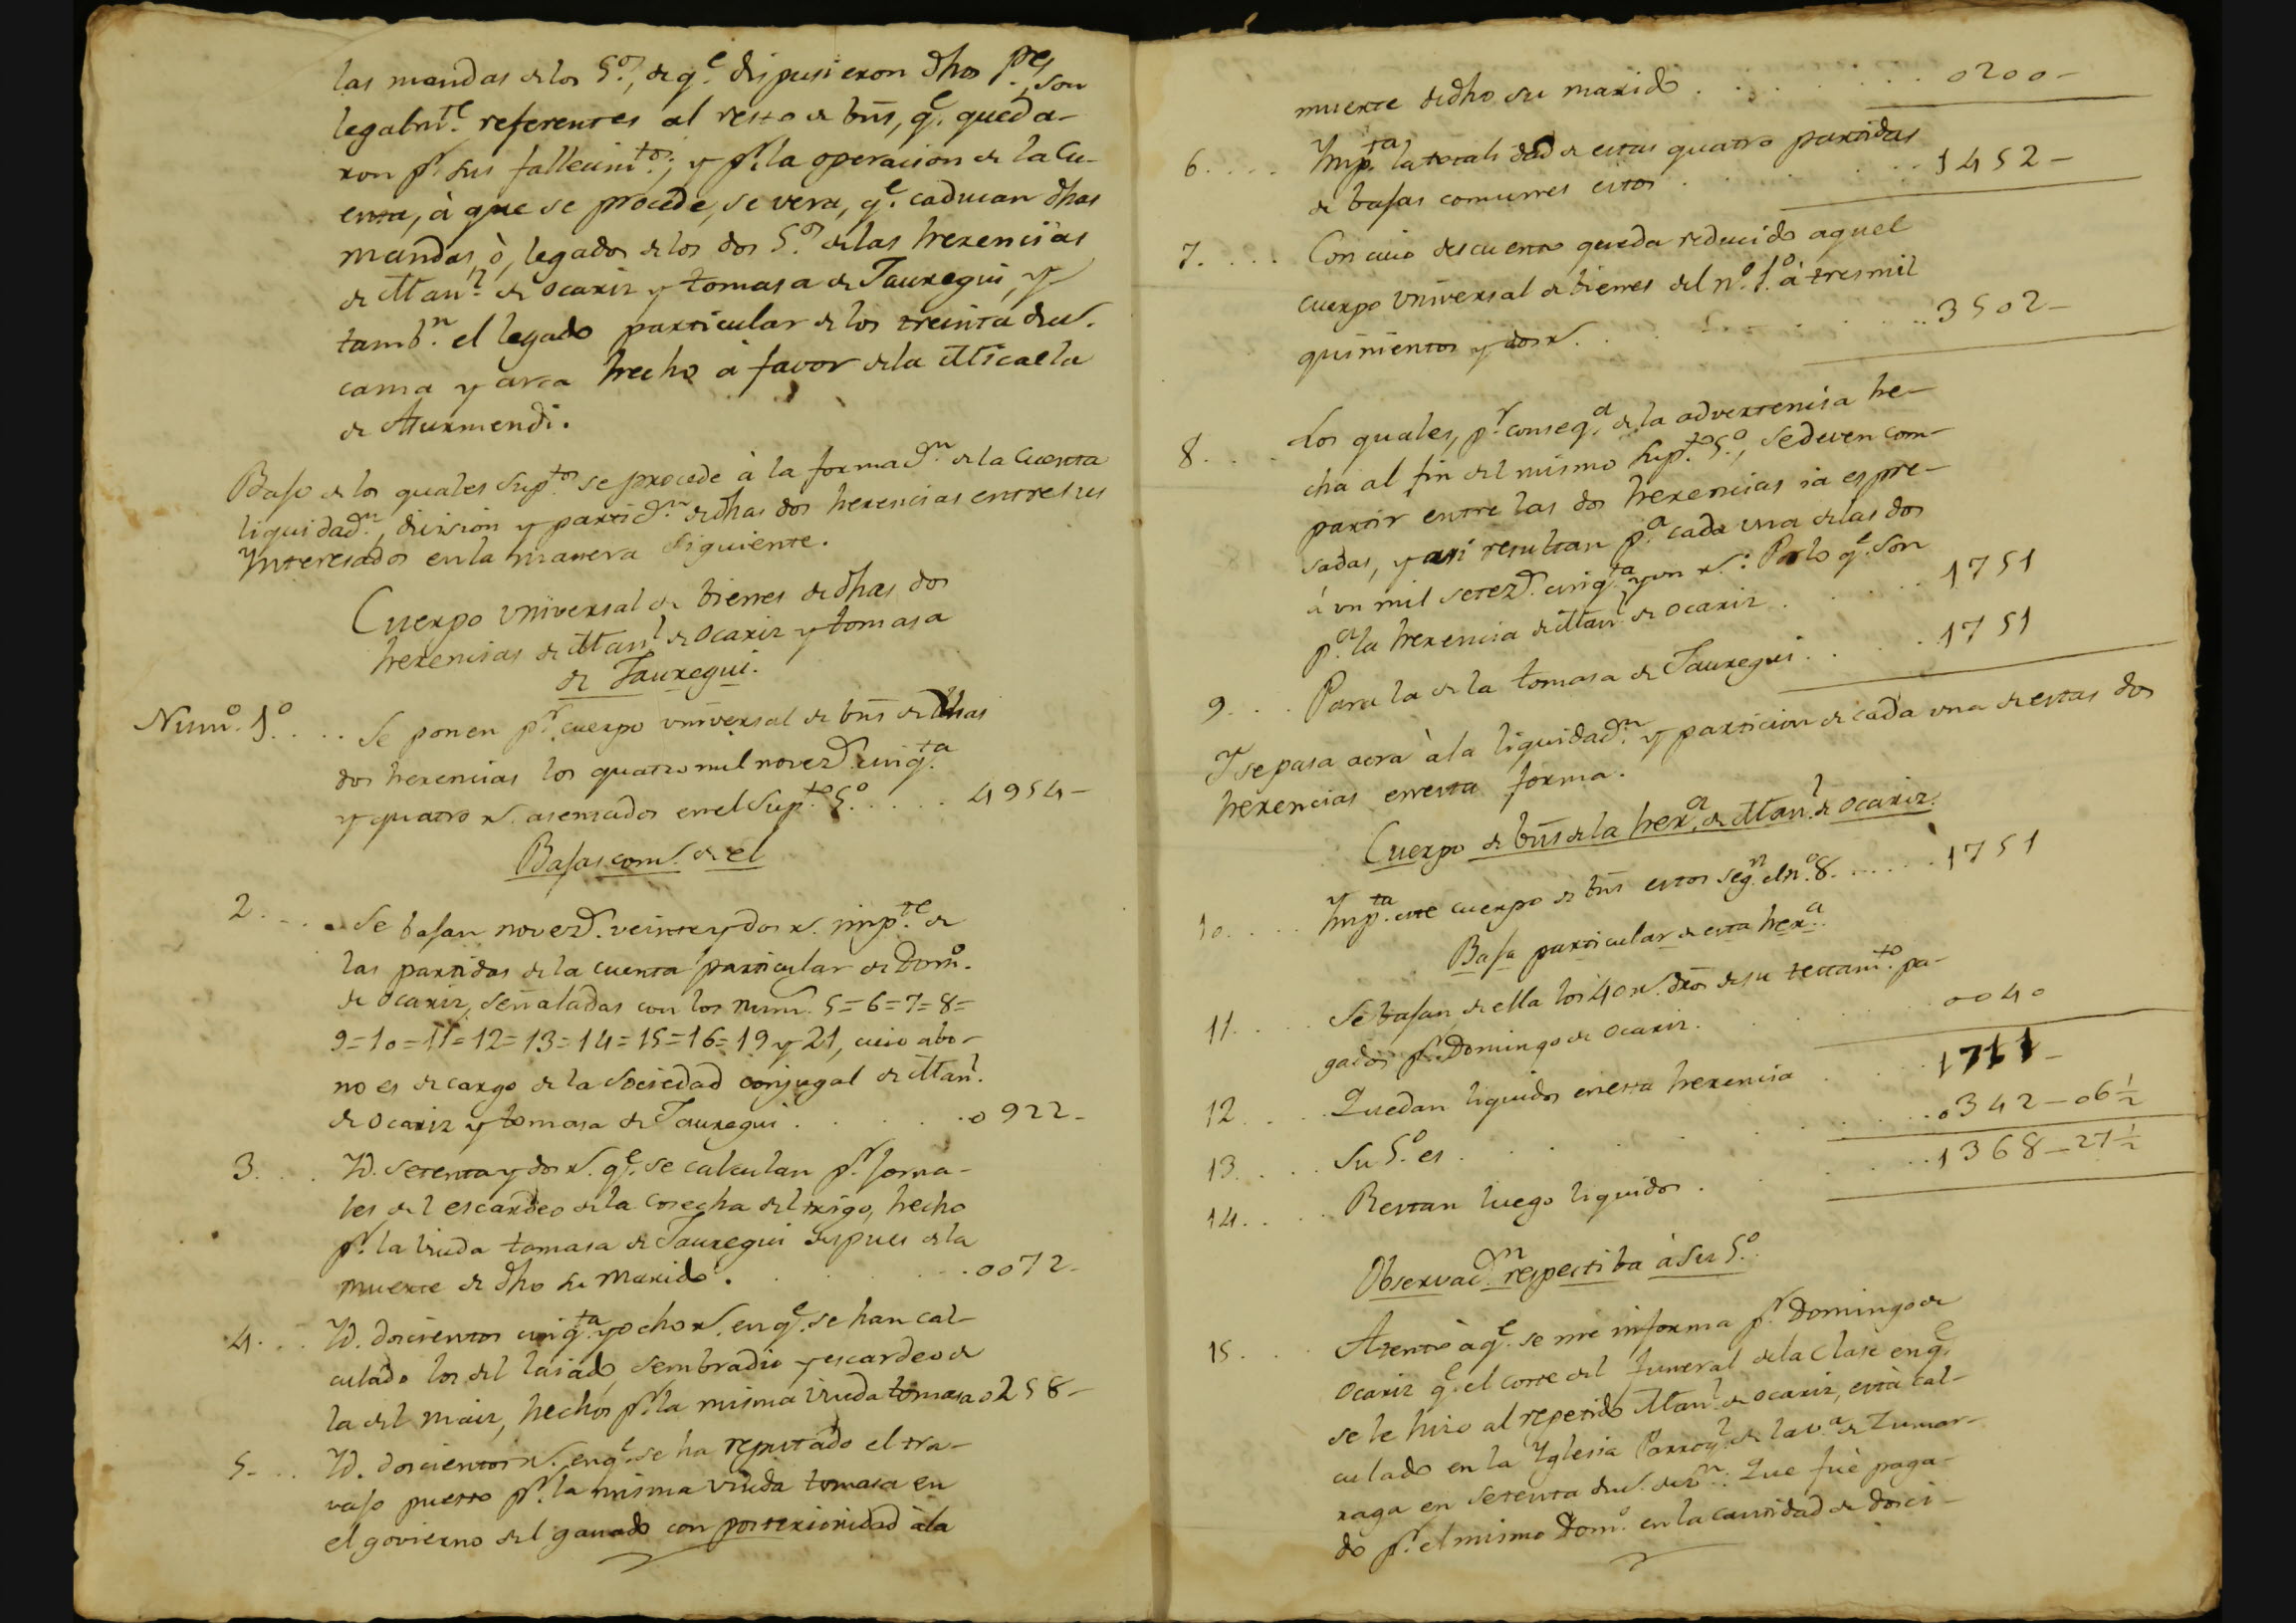 las mandas de los 5.os, de q.e dispusieron dhos p.es, son
legalm.te referentes al resto de bns, q.e queda-
ron p.r sus fallecim.tos; y p.r la operacion de la Cu-
enta, à que se procede, se vera, q.e caducan dhas
mandas, ò, legados de los dos 5.os de las herencias
de Man.l de Ocariz y tomasa de Jauregui, y
tamb.n el legado particular de los treinta du.s
cama y arca hecho à favor de la Micaela
de Aturmendi.
Bajo de los quales Sup.tos se procede à la formac.n de la Cuenta
liquidac.n, division y partic.n de dhas dos herencias entre sus
Ynteresados en la manera Siguiente.
Cuerpo vniversal de bienes de dhas dos
herencias de Man.l de Ocariz y tomasa
de Jauregui.
Num.o 1.o . . . Se ponen p.r cuerpo vniversal de bns de dhas
dos herencias los quatro mil novez.s cinq.ta
y quatro r.s asentados en el Sup.to 5.o . . . . 4954-
Bajas com.s de el
2. . . . Se bajan novez.s veinte y dos r.s imp.te de
las partidas de la cuenta particular de Dom.o
de Ocariz, señaladas con los num.s 5=6=7=8=
9=10=11=12=13=14=15=16=19 y 21, cuio abo-
no es de cargo de la Sociedad conjugal de Man.l
de Ocariz y tomasa de Jauregui . . . . . 0922-
3. . . . Yd. setenta y dos r.s q.e se calculan p.r jorna-
les del escardeo de la cosecha del trigo, hecho
p.r la viuda tomasa de Jauregui despues de la
muerte de dho su Marido . . . . . . 0072-
4. . . . Yd. docientos cinq.ta y ocho r.s en q.e se han cal-
culado los del laiado, sembradio y escardeo de
la del maiz, hechos p.r la misma viuda tomasa 0258-
5. . . . Yd. docientos r.s en q.e se ha reputado el tra-
vajo puesto p.r la misma viuda tomasa en
el govierno del ganado con posterioridad à la
muerte de dho su marido . . . . . . 0200-
6. . . . Ymp.ta la totalidad de estas quatro partidas
de bajas comunes estos . . . . . . 1452-
7. . . . Con cuio descuento queda reducido aquel
cuerpo vniversal de bienes del n.o 1.o à tres mil
quinientos y dos r.s . . . . . . 3502-
8. . . . Los quales, p.r conseq.a de la advertencia he-
cha al fin del mismo Sup.to 5.o, se deven com-
partir entre las dos herencias ia espre-
sadas, y asi resultan p.a cada vna de las dos
à vn mil setez.s cinq.ta y vn r.s: Por lo q.e son
p.a la herencia de Man.l de Ocariz . . . . . 1751
9. . . . Para la de la tomasa de Jauregui . . . . 1751
Y se pasa aora à la liquidac.n y particion de cada vna de estas dos
herencias en esta forma.
Cuerpo de bns de la her.a de Man.l de Ocariz.
10. . . . Ymp.ta este cuerpo de bns estos seg.n el n.o 8. . . . . . 1751
Baja particular de esta her.a
11. . . . Se bajan de ella los 40 r.s dros de su testam.to pa-
gados p.r Domingo de Ocariz . . . . . . 0040
12. . . . Quedan liquidos en esta herencia . . . . 1711-
13. . . . Su 5.o es . . . . . . . . 0342-06½
14. . . . Restan luego liquidos . . . . . . 1368-27½
Observac.n respectiba à su 5.o
15. . . . Atento à q.e se me informa p.r Domingo de
Ocariz q.e el corte del funeral de la Clase en q.e
se le hizo al repetido Man.l de Ocariz, està cal-
culado en la Yglesia Parroq.l de la v.a de Zumar-
raga en setenta du.s de v.n: Que fuè paga-
do p.r el mismo Dom.o en la cantidad de doci-